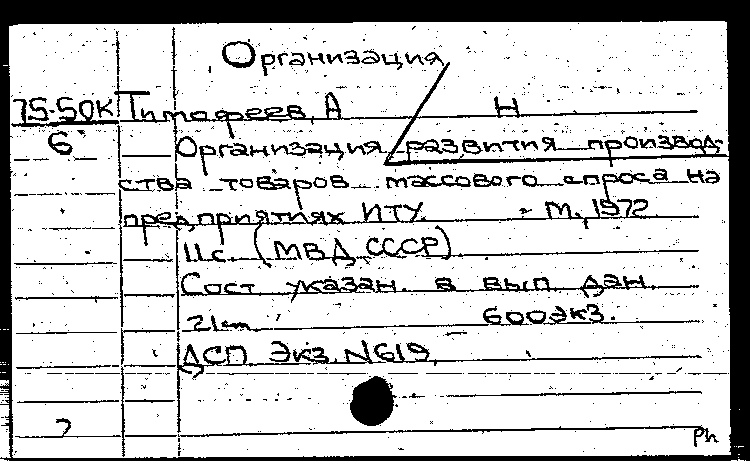 Организация
75-50К Тимофеев, А Н
6 Организация развития производ-
ства товаров массового спроса на
предприятиях ИТУ. - М., 1972
11с. (МВД СССР)
Сост указан. в вып. дан.
21см. 600экз.
ДСП Экз. N619
Ph